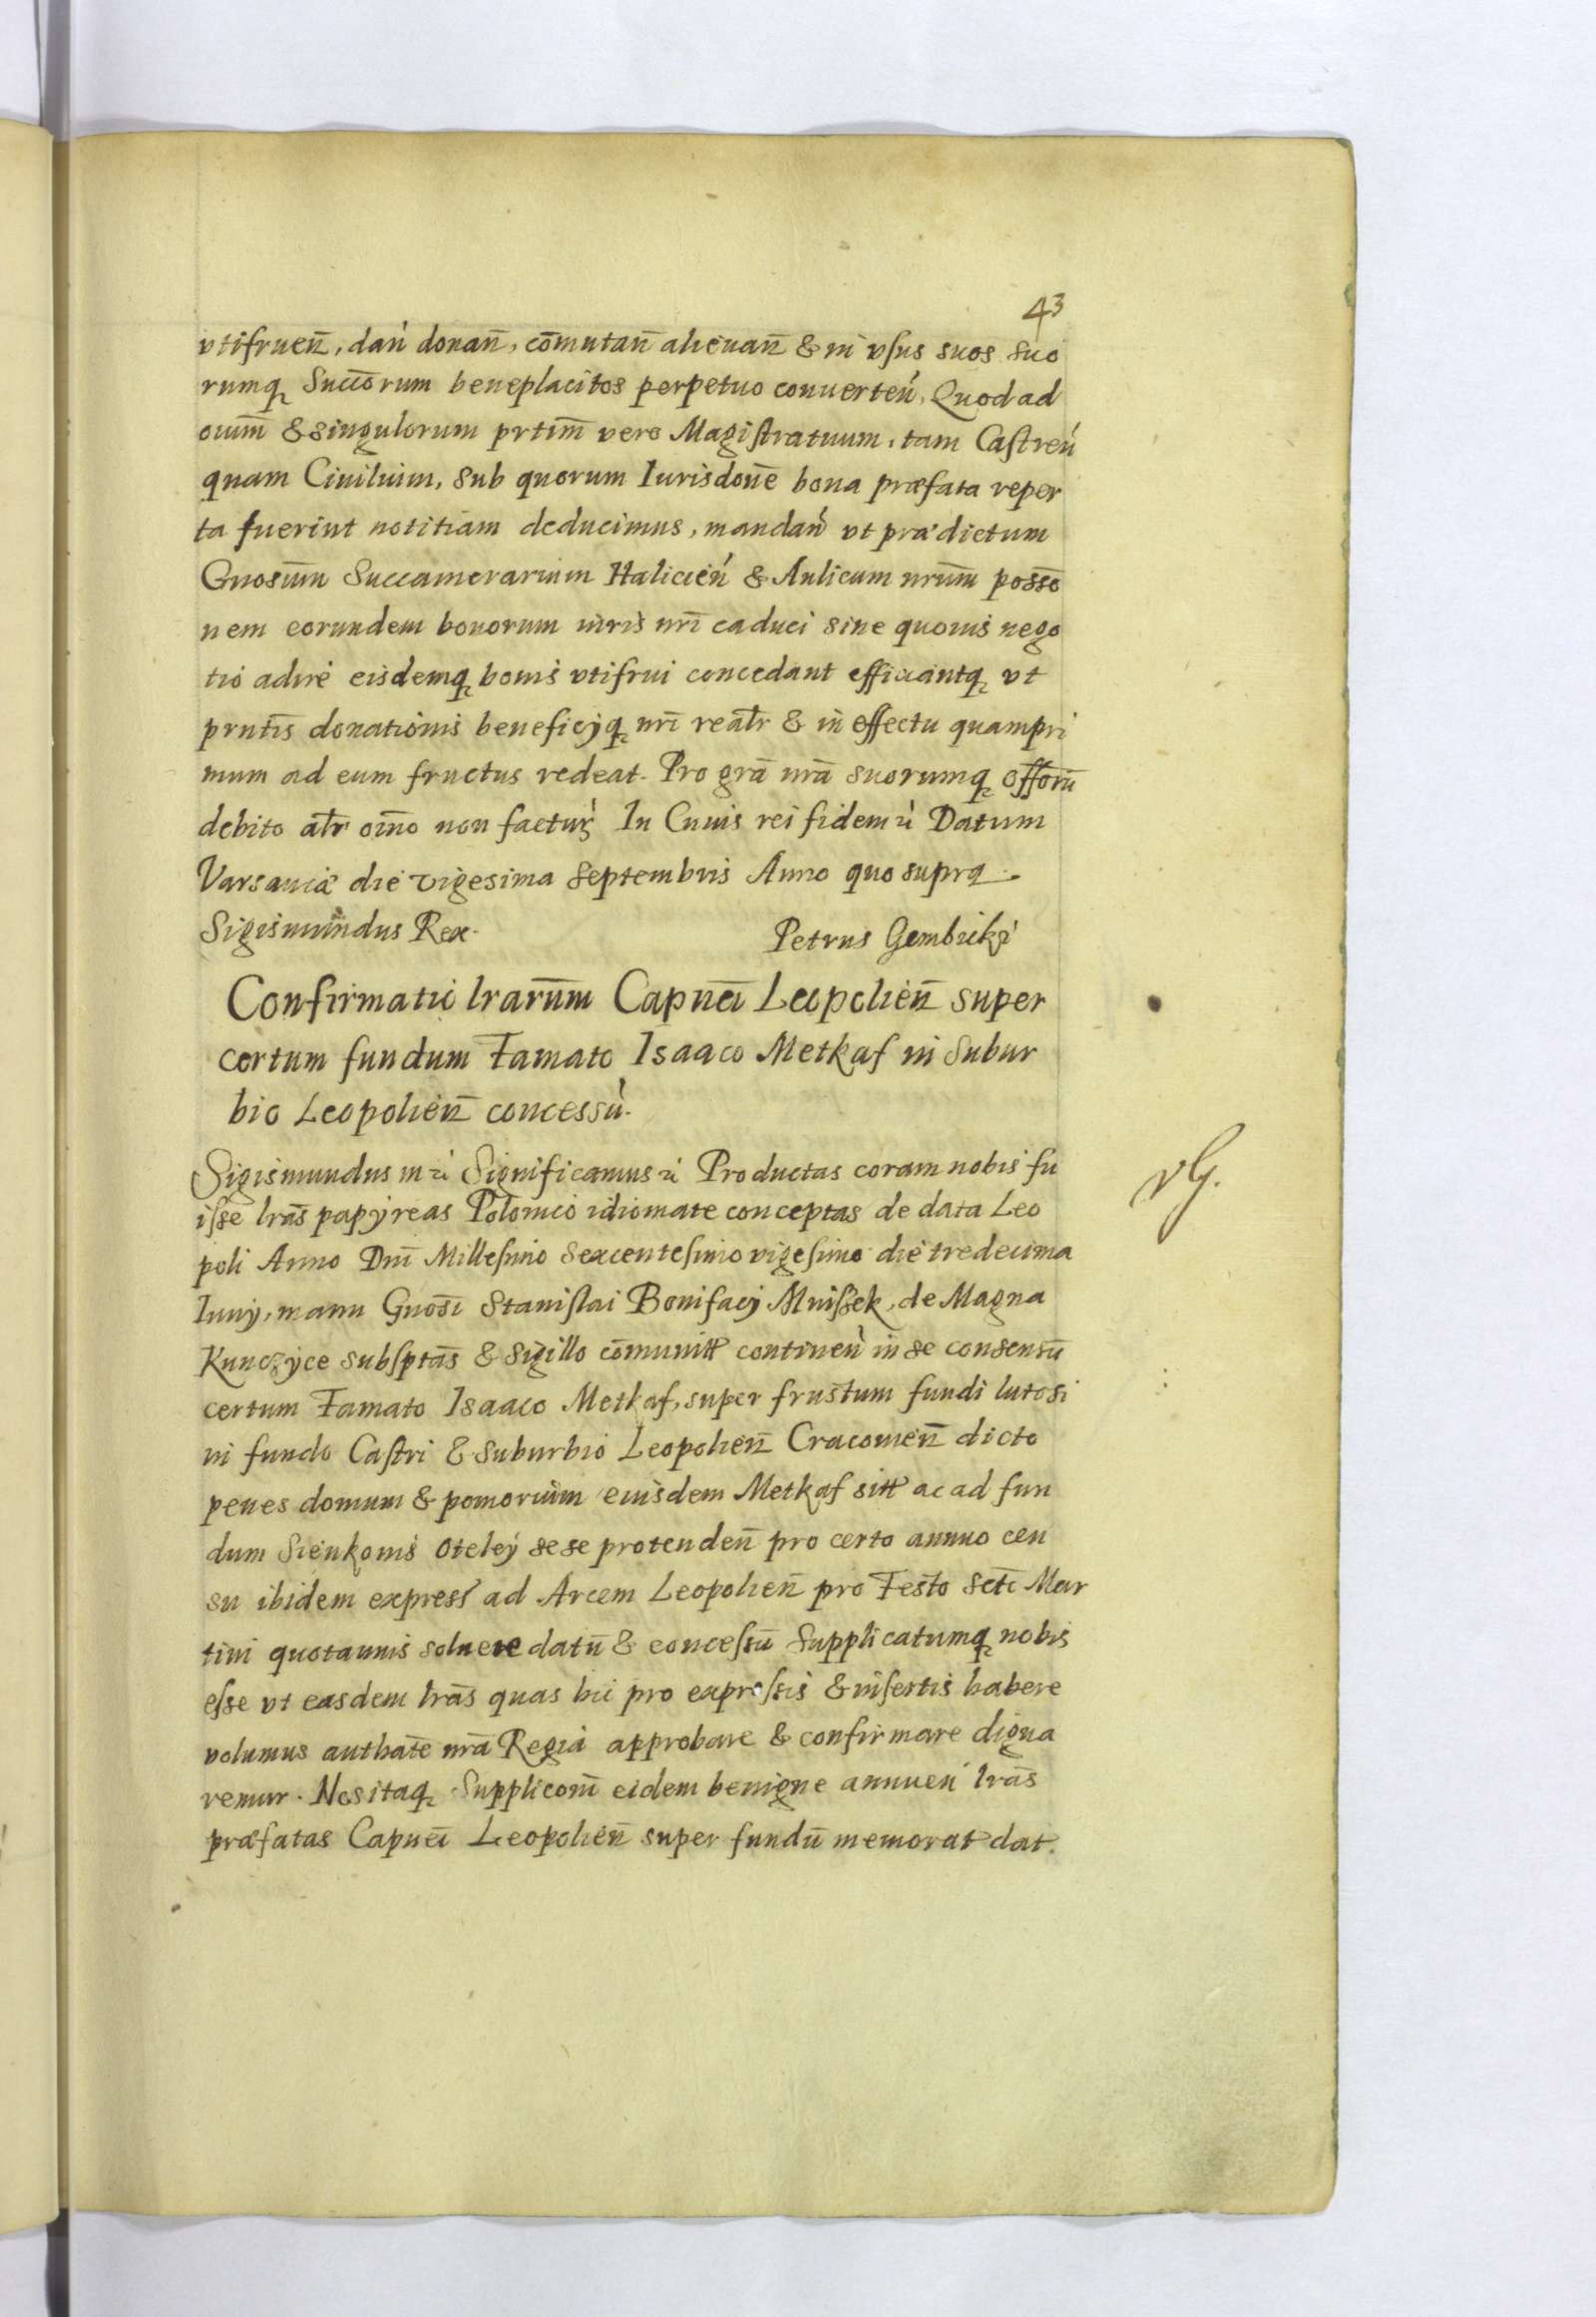 43
vtifrueñ, dań donañ, com̃utañ alienañ & in vsus suos suo
rumq̨ Succorum beneplacitos perpetuo conuerteń, Quod ad
oium̃ & singulorum prtim̃ vero Magistratuum, tam Castreń
quam Ciuilium, sub quorum Iurisdone̅ bona præfata reper
ta fuerint notitiam deducimus, mandań vt prædictum
Gnosum̃ Succamerarium Halicień & Aulicum nrum̃ posseō
nem eorundem bonorum iuris nri̅ caduci sine quouis nego
tio adire eisdemq̨ bonis vtifrui concedant efficiantq̨ vt
prnti̅s donationis beneficijq̨ nri̅ realr̅ & in effectu quampri
mum ad eum fructus redeat. Pro grã nrã suorumq̨ offorũ
debito alr̅ oiño non factuŕ In Cuius rei fidem ń Datum
Varsauiæ die vigesima Septembris Anno quo supra.
Sigismundus Rex. Petrus Gembicki
Confirmatio lrarum̃ Capnei̅ Leopolieñ super
certum fundum Famato Isaaco Metkaf in Subur
bio Leopolieñ concessù.
Sigismundus III ń Significamus ń Productas coram nobis fu
isse lrãs papyreas Polonico idiomate conceptas de data Leo
poli Anno Dni̅ Millesimo Sexcentesimo vigesimo die tredecima
Iunij, manu Gnosi̅ Stanislai Bonifacij Mniszek, de Magna
Kunczyce subsptãs & Sigillo com̃unitt continen̄ in se consensũ
certum Famato Isaaco Metkaf, super frustum fundi lutosi
in fundo Castri & suburbio Leopolieñ Cracouieñ dicto
penes domum & pomorium eiusdem Metkaf sitt ac ad fun
dum Sieńkonis Oteley sese protendeñ pro certo annuo cen
su ibidem express ad Arcem Leopolieñ pro Festo Scti̅ Mar
tini quotannis soluere datũ & concessũ Supplicatumq̨ nobis
esse vt easdem lrãs quas hic pro expressis & insertis habere
volumus authate̅ nrã Regia approbare & confirmare digna
remur. Nos itaq̨ Supplicoñi eidem benigne annueń lrãs
præfatas Capnei̅ Leopolieñ super fundũ memorat dat.